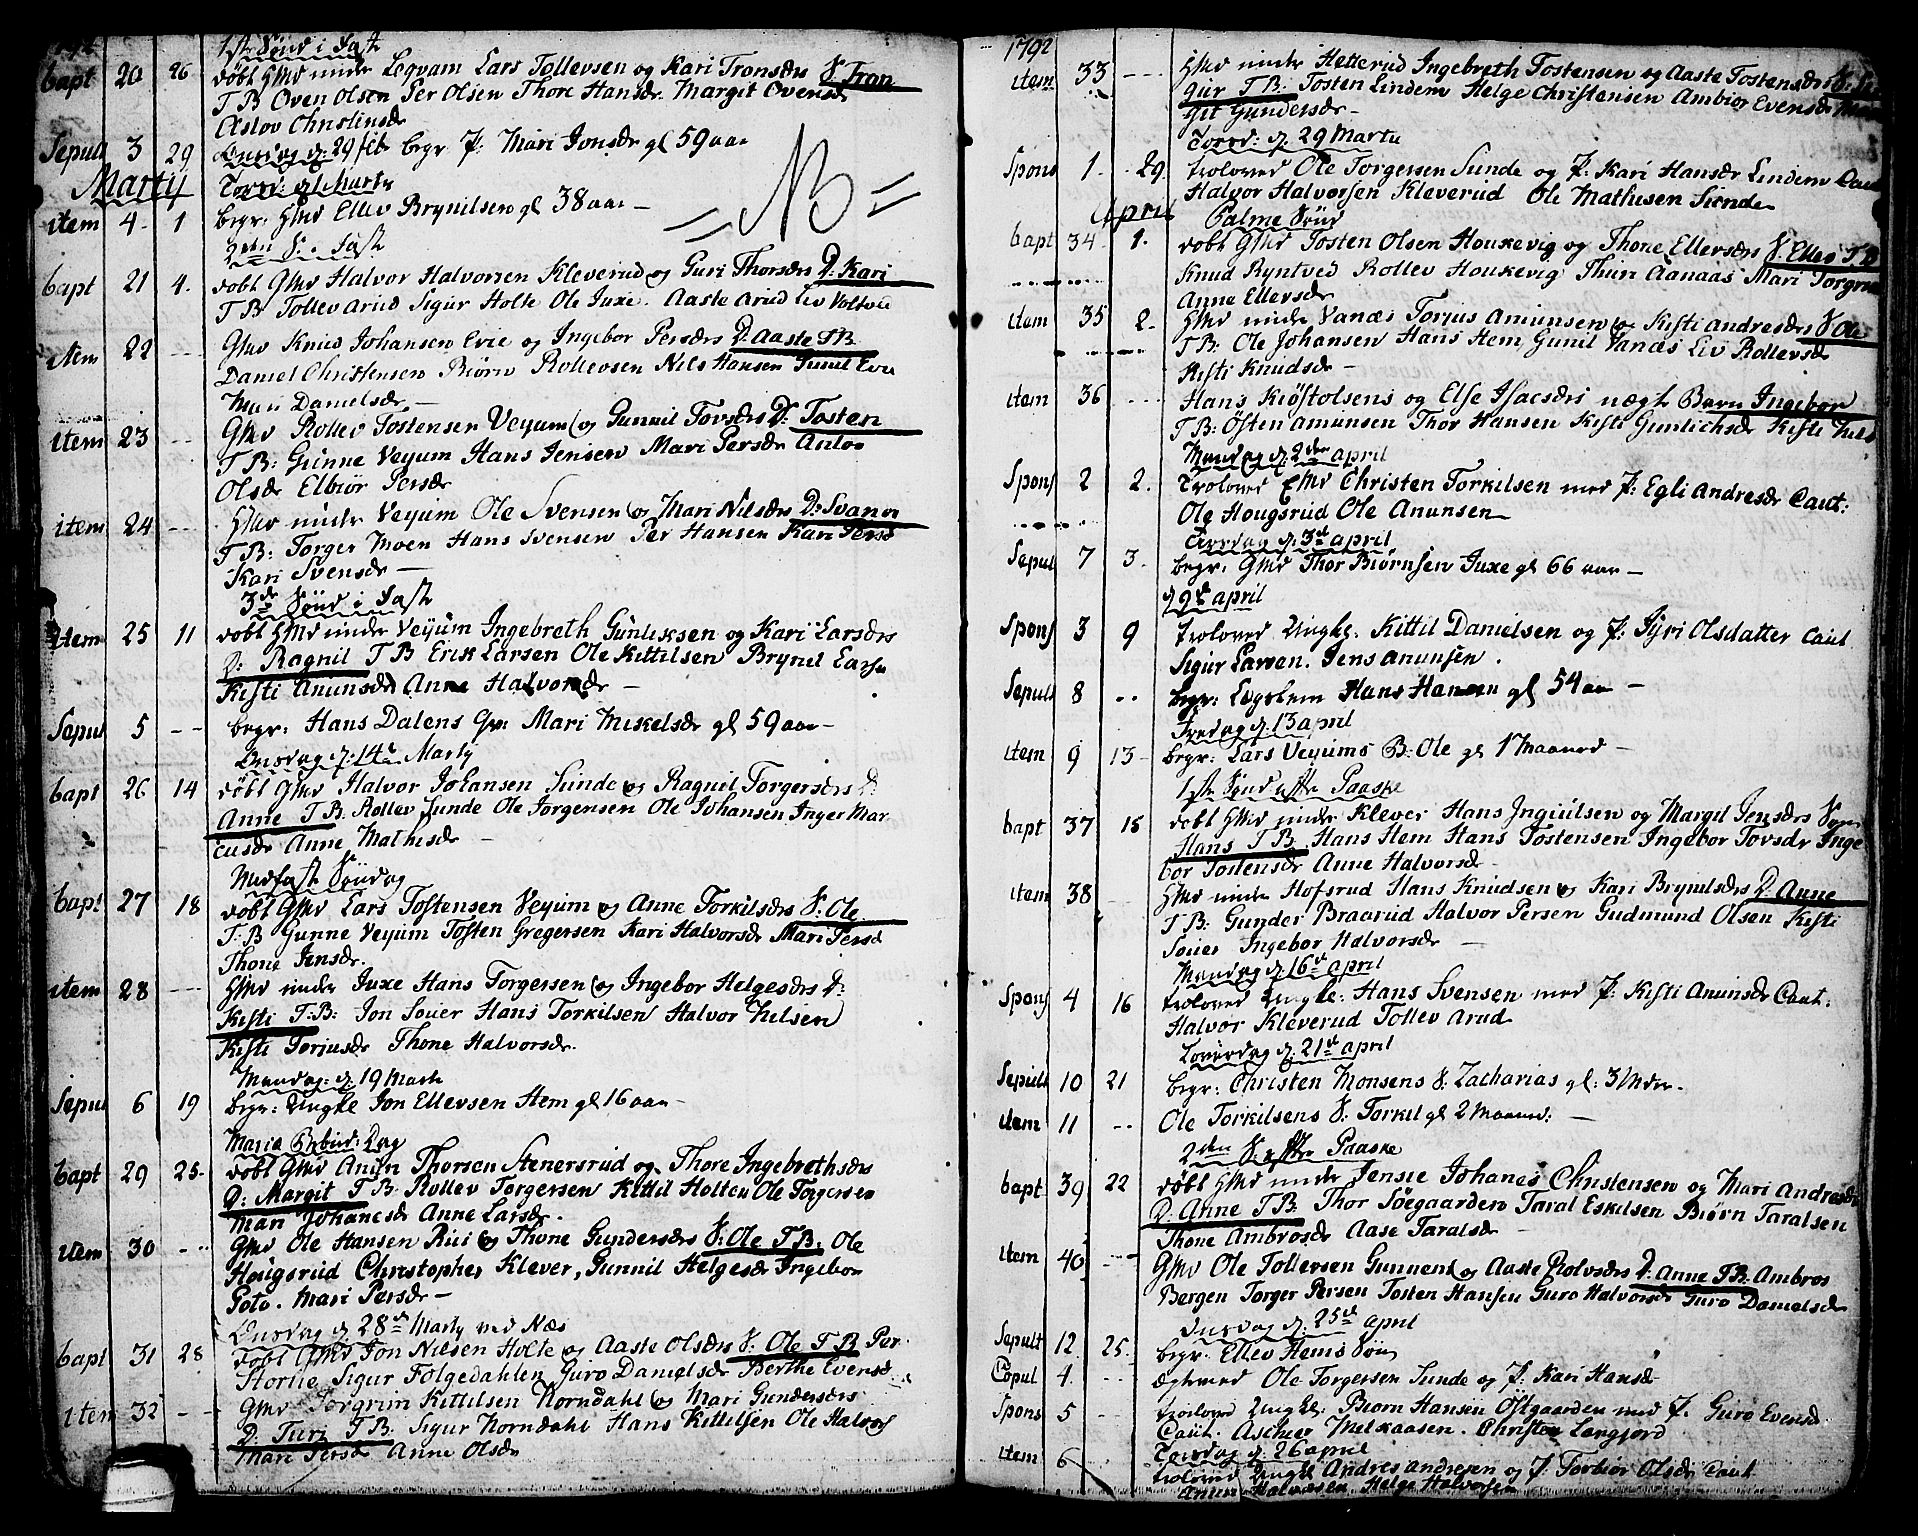 1ste Sønd i Fast
bapt 20 26 døbt GMd under Leqvam Lars Tollevsen og Kari Tronsdrs S. Tron
T B Oven Olsen Per Olsen Thore Hansdr Margit Ovensdr
Aslov Christinsdr
Sepult 3 29 Onsdag d: 29 feb begr P: Mari Jonsdr gl 59 aar
Martij Torsd: d 1 Marti
NB
item 4 1 begr: GMd Ellev Brynilsen gl 38 aar
2den S. i Fast
bapt 21 4. døbt GMd Halvor Halvorsen Kleverud og Guri Thorsdrs D: Kari
T B Tollev Arud Sigur Holte Ole Juxe. Aaste Arud Liv Voltvei
item 22 GMd Knud Johansen Evie og Ingebor Persdrs D: Aaste T B
Daniel Christensen Biørn Rollevsen Nils Hansen Gunil Evie
Mari Danielsdr
item 23 GMd Rollev Tostensen Veyum og Gunnil Torsdrs D: Tosten
T B: Gunne Veyum Hans Jensen Mari Persdr Anlov
Olsdr Elbiør Persdr
item 24 GMd under Veyum Ole Svensen og Mari Nilsdrs D: Svanou
T B: Torger Moen Hans Svensen Per Hansen Kari Persd
Kari Svensdr
3de Sønd i Fast
item 25 11 døbt GMd under Veyum Ingebreth Gunleksen og Kari Larsdrs
D: Ragnil T B Erik Larsen Ole Kittilsen Brynil Larsen
Kisti Anunsdr Anne Halvorsdr
Sepul 5 begr: Hans Dalens Qv: Mari Mikelsdr gl 59 aar
Onsdag d: 14de Martij
bapt 26 14 døbt GMd Halvor Johansen Sunde og Ragnil Torgersdrs D:
Anne T B. Rollev Sunde Ole Jorgensen Ole Johansen Inger Mar
cusdr Anne Mathisdr
Midfast Søndag
bapt 27 18 døbt GMd Lars Tostensen Veyum og Anne Torkilsdrs S: Ole
T: B Gunne Veyum Tosten Gregersen Kari Halvorsdr Mari Persd
Thone Jensdr
item 28 GMd under Juxe Hans Torgersen og Ingebor Helgesdrs D:
Kisti T: B: Jon Soüer Hans Torkilsen Halvor Nelsen
Kisti Torjusdr Thone Halvorsdr.
Mandag: d: 19 Marti
Sepul 6 19 begr: Ungke Jon Ellevsen Hem gl 16 aar
Maria Bebud: Dag
bapt 29 25. døbt GMd Anun Thorsen Stenersrud og Thore Ingebrethsdrs
D: Margit T B. Rollev Torgersen Kittil Holten Ole Torgersen
Mari Johanesdr Anne Larsdr.
item 30 GMd Ole Hansen Rui og Thone Gundersdrs S: Ole T B: Ole
Hougsrud Christopher Klever, Gunnil Helgesdr Ingebor
Goto. Mari Persdr
Onsdag d 28de Martij ved Næs
bapt 31 28 døbt GMd Jon Nilsen Holte og Aaste Olsdrs S: Ole T B Per
Storne Sigur Folgedahlen Guro Danielsdr Berthe Evensd
item 32 GMd Torgrim Kittilsen Norndahl og Mari Gundersdrs
D: Turi T B: Sigur Norndahl Hans Kittilsen Ole Halvors
Mari Persdr Anne Olsdr
1792
item 33 GMd under Hetterud Ingebreth Tostensen og Aaste Tostensdrs S: Si
gur T B: Tosten Lindem Helge Christensen Ambiør Evensdr Mar
git Gundersdr
Torsd: d: 29 Marti
Spons 1. 29. troloved Ole Torgersen Sunde og P: Kari Hansdr Lindem Caut
Halvor Halvorsen Kleverud Ole Mathesen Sunde
April Palme Sønd
bapt 34 1. døbt GMd Tosten Olsen Houkevig og Thone Ellevsdrs S. Ellev T B
Knud Ryntved Rollev Houkevig Thuri Aanaas Mari Torgrim
Anne Ellevsdr
item 35 2. GMd under Vanæs Torjus Amunsen og Kisti Andresdrs S Ole
T B: Ole Johansen Hans Hem, Gunil Vanæs Liv Rollevsdr
Kisti Knudsdr
item 36 Hans Kiøstolsens og Else Isacsdrs uægt Barn Ingebor
T B: Østen Amunsen Thor Hansen Kisti Gunlichsdr Kisti Nils
Mandag d: 2den April
Spons 2 2. troloved EMd Christen Torkilsen med P: Egli Andresdr Caut:
Ole Hougsrud Ole Anunsen
Tirsdag d: 3de April
Sepul 7 3. begr: GMd Thor Biørnsen Juxe gl 66 aar
d 9de April
Spons 3 9 troloved Ungke. Kittil Danielsen og P: Jyri Olsdatter Caut
Sigur Larsen. Jens Anunsen.
Sepult 8 begr: Lægslem Hans Hansen gl 54 aar
Fredag d. 13 April
item 9 13 begr: Lars Veyums B: Ole gl 1 Maaned
1ste Sønd efter Paaske
bapt 37 15 døbt GMd under Klever Hans Ingvilsen og Margit Jensdrs Søn
Hans T B. Hans Hem Hans Tostensen Ingebor Torsdr Inge
bor Tostensdr Anne Halvorsdr
item 38 GMd under Hofsrud Hans Knudsen og Kari Brynilsdrs D: Anne
T B: Gunder Braarud Halvor Persen Gudmund Olsen Kisti
Soüer Ingebor Halvorsdr
Mandag d: 16de April
Spons 4 16 troloved Ungke: Hans Svensen med P: Kisti Anunsdr Caut:
Halvor Kleverud Tollev Arud
Løverdag d: 21de April
Sepult 10 21 begr: Christen Monsens S. Zacharias gl: 3 Uger.
item 11 Ole Torkilsens S: Torkil gl 2 Maaned:
2den S: efter Paaske
bapt 39 22 døbt GMd under Jensie Johanes Christensen og Mari Andresdrs
D: Anne T B: Thor Søegaarden Taral Eskilsen Biørn Taralsen
Thone Ambrosdr Aase Taralsdr
item 40 GMd Ole Tollevsen Gunnens og Aaste Rolvsdrs D: Anne T B: Ambros
Bergen Torger Persen Tosten Hansen Guro Halvorsdr Guro Danielsdr
Onsdag d: 25de April
Sepult 12 25. begr: Ellev Hems Søn
Copul 4. ægteviet Ole Torgersen Sunde og P. Kari Hansdr
Spons 5 trolovet Ungke: Biørn Hansen Østgaarden med P. Guro Evensd
Caut. Ascher Melkaasen. Christen Langjord
Torsdag d: 26 April
item 6 trolovet Ungke Andres Andresen og P. Torbiør Olsdr Caut
Anun Halvorsen Helge Halvorsen